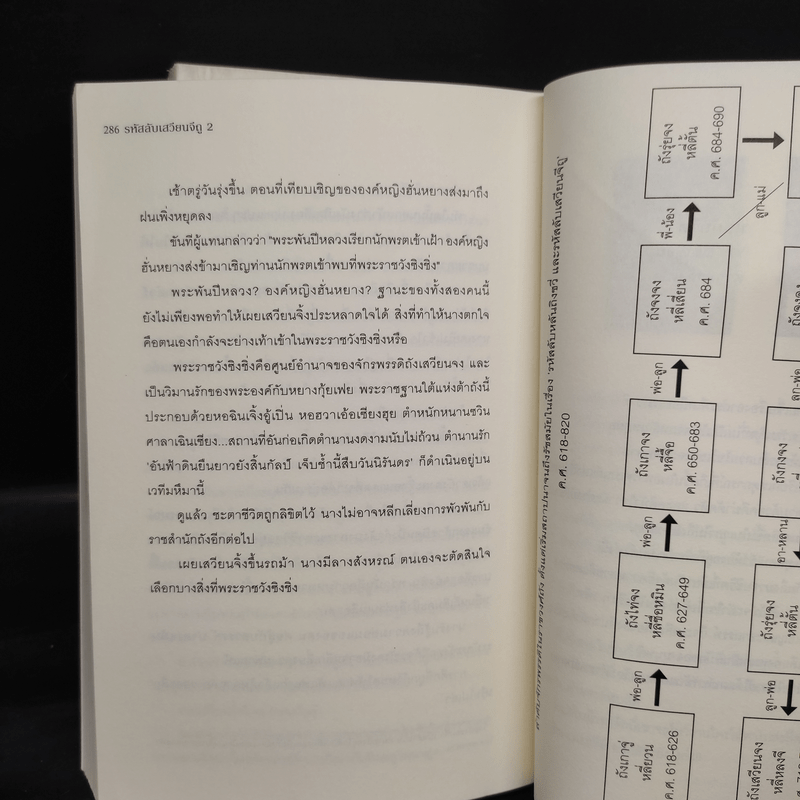 286 รหัสลับเสวียนจีถู 2
เช้าตรู่วันรุ่งขึ้น ตอนที่เทียบเชิญขององค์หญิงฮั่นหยางส่งมาถึง
ฝนเพิ่งหยุดลง
ขันทีผู้แทนกล่าวว่า "พระพันปีหลวงเรียกนักพรตเข้าเฝ้า องค์หญิง
ฮั่นหยางส่งข้ามาเชิญท่านนักพรตเข้าพบที่พระราชวังซิงชิ่ง"
พระพันปีหลวง? องค์หญิงฮั่นหยาง? ฐานะของทั้งสองคนนี้
ยังไม่เพียงพอทำให้เผยเสวียนจิ้งประหลาดใจได้ สิ่งที่ทำให้นางตกใจ
คือตนเองกำลังจะย่างเท้าเข้าในพระราชวังซิงชิ่งหรือ
พระราชวังซิงชิ่งคือศูนย์อำนาจของจักรพรรดิถังเสวียนจง และ
เป็นวิมานรักของพระองค์กับหยางกุ้ยเฟย พระราชฐานใต้แห่งต้าถังนี้
ประกอบด้วยหอฉินเจิ้งอู้เปิ่น หอฮวาเอ้อเซียงฮุย ตำหนักหนานซวิน
ศาลาเฉินเซียง...สถานที่อันก่อเกิดตำนานงดงามนับไม่ถ้วน ตำนานรัก
'อันฟ้าดินยืนยาวยังสิ้นกัลป์ เจ็บช้ำนี้สืบวันนิรันดร' ก็ดำเนินอยู่บน
เวทีมหึมานี้
ดูแล้ว ชะตาชีวิตถูกลิขิตไว้ นางไม่อาจหลีกเลี่ยงการพัวพันกับ
ราชสำนักถังอีกต่อไป
เผยเสวียนจิ้งขึ้นรถม้า นางมีลางสังหรณ์ ตนเองจะตัดสินใจ
เลือกบางสิ่งที่พระราชวังซิงชิ่ง
และรหัสลับเสวียนจีถู'
ค.ศ. 618-820
ถังเกาจู่
หลี่ยวน
ค.ศ. 618-626
พ่อ-ลูก
ถังไท่จง
หลี่ซื่อหมิน
ค.ศ. 627-649
พ่อ-ลูก
ถังเกาจง
หลี่จื้อ
ค.ศ. 650-683
พ่อ-ลูก
ถังจงจง
หลี่เสี่ยน
ค.ศ. 684
พี่-น้อง
ถังรุ่ยจง
หลี่ตั้น
ค.ศ. 684-690
ลูก-แม่
ถังจงจง
ลูก-พ่อ
ถังกงจง
อา-หลาน
ถังรุ่ยจง
หลี่ตั้น
ลูก-พ่อ
ถังเสวียนจง
หลี่หลงจี